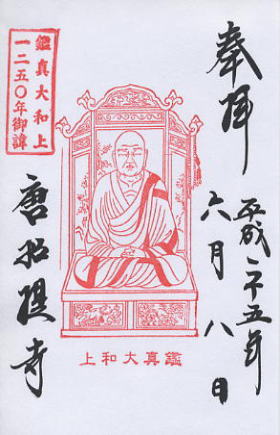 奉拝
平成二十五年
六月八日
鑑真大和上
一二五〇年御諱
鑑真大和上
唐招提寺